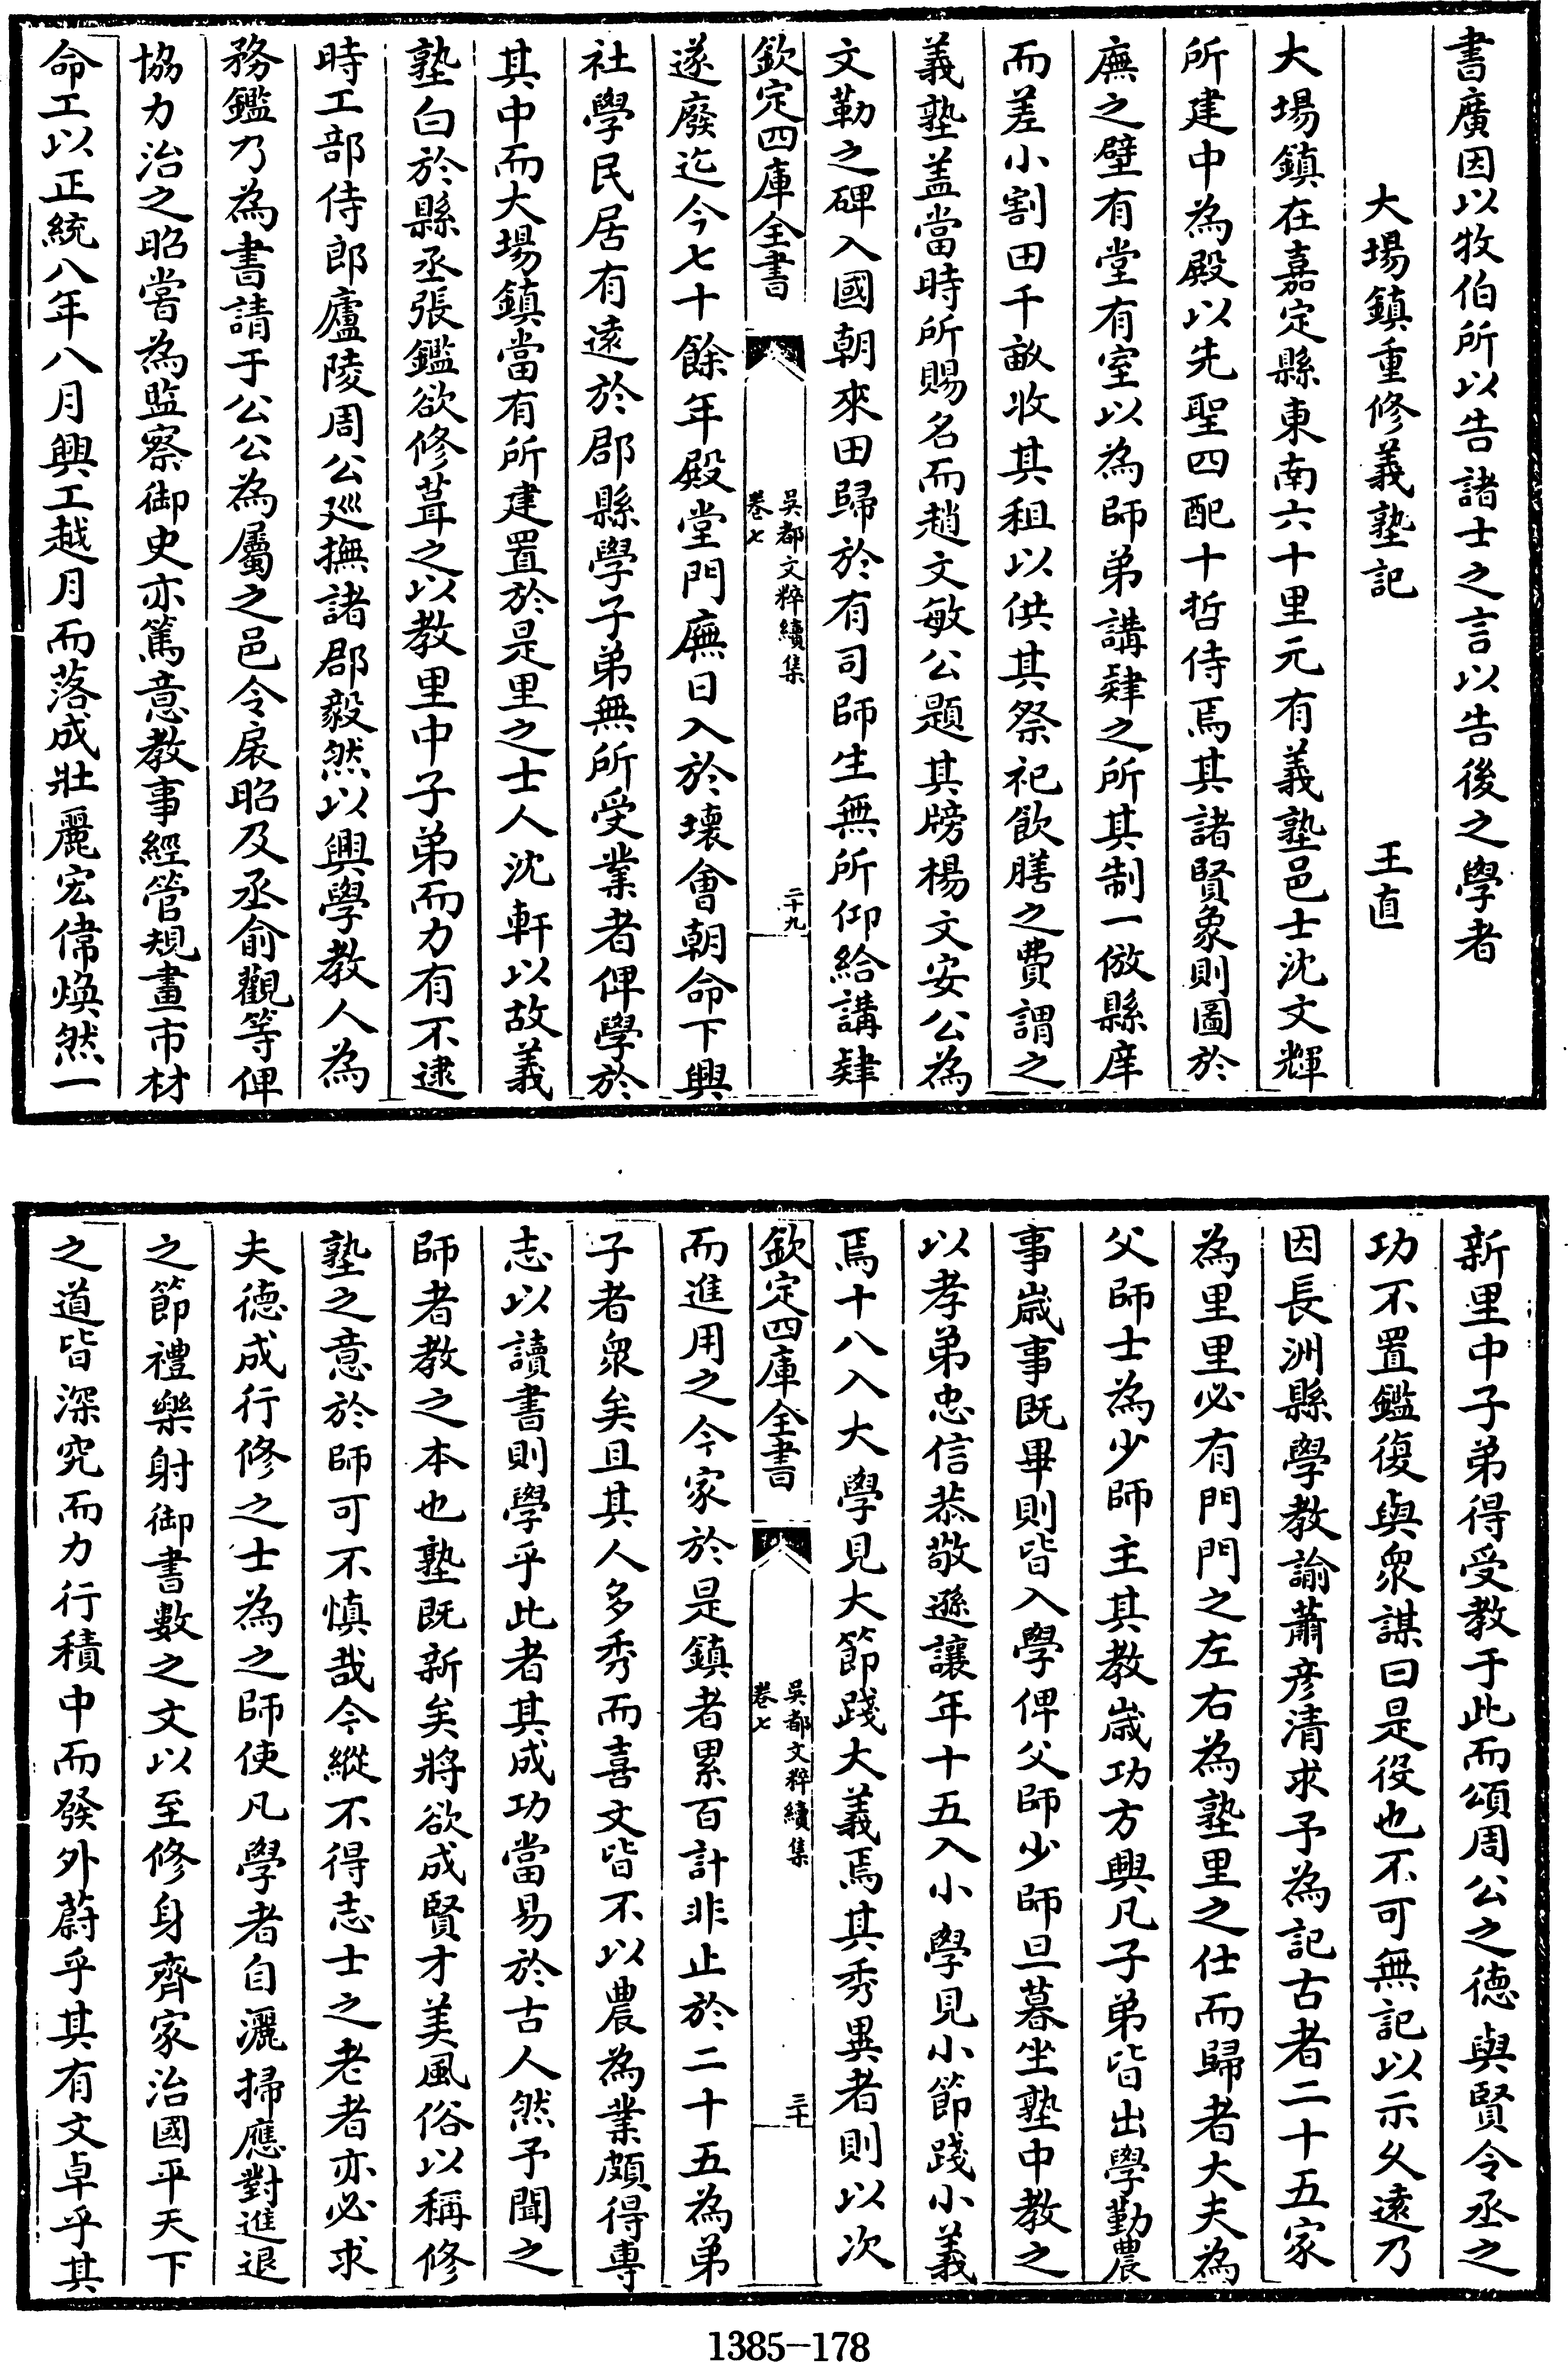 書廣因以牧伯所以告諸士之言以告後之學者
大場鎮重修義塾記　王直
大場鎮在嘉定縣東南六十里元有義塾邑士沈文輝
所建中為殿以先聖四配十哲侍焉其諸賢象則圖於
廡之壁有堂有室以為師弟講肄之所其制一倣縣庠
而差小割田千畝收其租以供其祭祀飲膳之費謂之
義塾盖當時所賜名而趙文敏公題其牓楊文安公為
文勒之碑入國朝來田歸於有司師生無所仰給講肄
欽定四庫全書
吳都文粹續集
卷七
二十九
遂廢迄今七十餘年殿堂門廡日入於壞會朝命下興
社學民居有遠於郡縣學子弟無所受業者俾學於
其中而大場鎮當有所建置於是里之士人沈軒以故義
塾白於縣丞張鑑欲修葺之以教里中子弟而力有不逮
時工部侍郎廬陵周公廵撫諸郡毅然以興學教人為
務鑑乃為書請于公公為屬之邑令扆昭及丞俞觀等俾
協力治之昭嘗為監察御史亦篤意教事經管規畫市材
命工以正統八年八月興工越月而落成壯麗宏偉煥然一
新里中子弟得受教于此而頌周公之德與賢令丞之
功不置鑑復與衆謀曰是役也不可無記以示久遠乃
因長洲縣學教諭蕭彥清求予為記古者二十五家
為里里必有門門之左右為塾里之仕而歸者大夫為
父師士為少師主其教歲功方興凡子弟皆出學勤農
事歲事既畢則皆入學俾父師少師旦暮坐塾中教之
以孝弟忠信恭敬遜讓年十五入小學見小節踐小義
焉十八入大學見大節踐大義焉其秀異者則以次
欽定四庫全書
吳都文粹續集
卷七
三十
而進用之今家於是鎮者累百計非止於二十五為弟
子者衆矣且其人多秀而喜文皆不以農為業頗得專
志以讀書則學乎此者其成功當易於古人然予聞之
師者教之本也塾既新矣將欲成賢才美風俗以稱修
塾之意於師可不慎哉今縱不得志士之老者亦必求
夫德成行修之士為之師使凡學者自灑掃應對進退
之節禮樂射御書數之文以至修身齊家治國平天下
之道皆深究而力行積中而發外蔚乎其有文卓乎其
1385-178